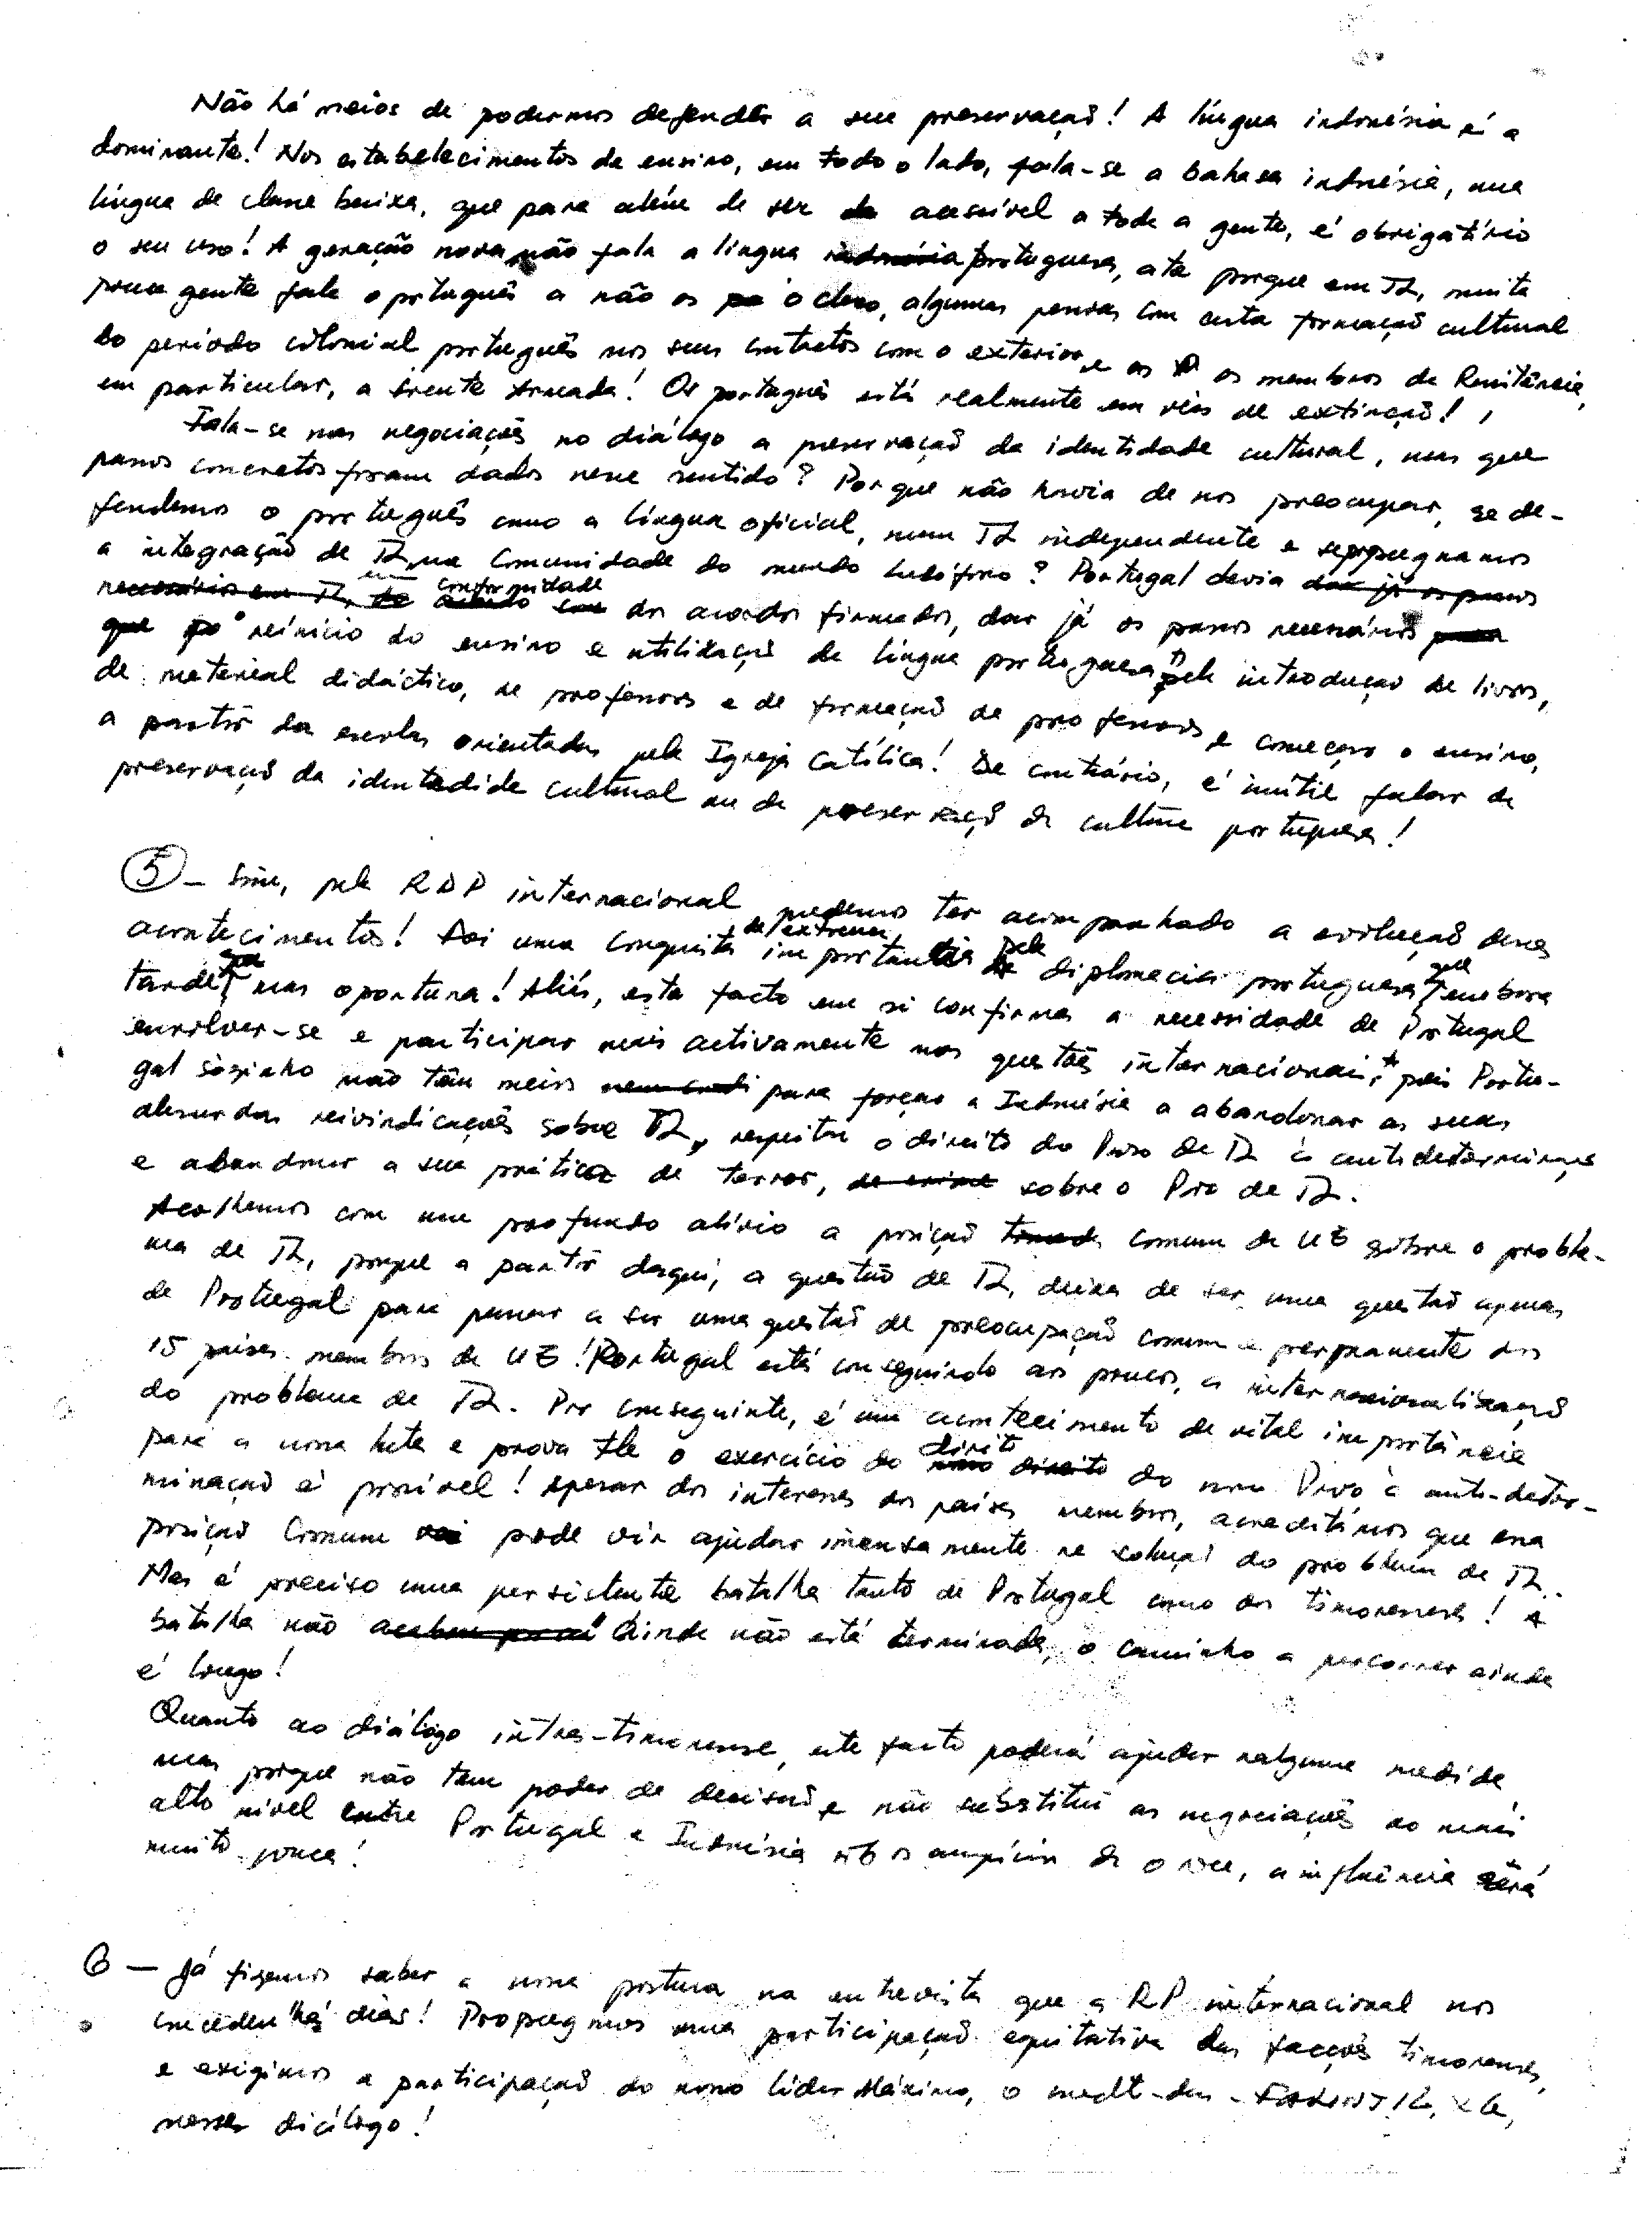 Não há meios de podermos defender a sua preservação! A língua indonésia é a
dominante! Nos estabelecimentos de ensino, em todo o lado, fala-se a bahasa indonésia, uma
língua de classe baixa, que para além de ser acessível a toda a gente, é obrigatório
o seu uso! A geração nova não fala a língua portuguesa, até porque em TL, muita
pouca gente fala o português a não os o clero, algumas pessoas com certa formação cultural
do período colonial português nos seus contactos com o exterior e os os membros da Resistência,
em particular, a frente armada! Os português está realmente em vias de extinção!
Fala-se nas negociações no diálogo a preservação da identidade cultural, mas que
passos concretos foram dados nesse sentido? Porque não havia de nos preocupar, se de-
fendemos o português como a língua oficial, num TL independente e
a integração de TL na Comunidade do mundo lusófono? Portugal devia dar já os passos
necessários em TL, em conformidade dos acordos firmados, dar já os passos necessários
o reinício do ensino e utilização da língua portuguesa pela introdução de livros,
de material didáctico, de professores e de formação de professores e começar o ensino,
a partir das escolas orientadas pela Igreja Católica! De contrário, é inútil falar da
preservação da identedide cultural ou da preservação da cultura portuguesa!
5 - Sim, pela RDP internacional pudemos ter acompanhado a evolução desses
acontecimentos! Foi uma conquista de extrema importância pela diplomacia portuguesa, que embora
tarde, mas oportuna! Aliás, este facto em si confirma a necessidade de Portugal
envolver-se e participar mais activamente nas questões internacionais, pois Portu-
gal sòzinho não têm meios para forçar a Indonésia a abandonar as suas
absurdas reivindicações sobre TL, respeitar o direito do Povo de TL à autodeterminação
e abandonar a sua prática de terror, de crime sobre o Povo de TL.
Acolhemos com um profundo alívio a posição tomada comum da UE sobre o proble-
ma de TL, porque a partir daqui, a questão de TL, deixa de ser uma questão apenas
de Portugal para passar a ser uma questão de preocupação comum e permanente dos
15 países membros da UE! Portugal está conseguindo aos poucos, a internacionalização
do problema de TL. Por conseguinte, é um acontecimento de vital importância
para a nossa luta e prova que o exercício do direito do nosso Povo à auto-deter-
minação é possível! Apesar dos interesses dos países membros, acreditámos que essa
posição Comum pode vir ajudar imensamente na solução do problema de TL.
Mas é preciso uma persistente batalha tanto de Portugal como dos timorenses! A
batalha não ainda não está terminada, o caminho a percorrer ainda
é longo!
Quanto ao diálogo intra-timorense, este facto poderá ajudar nalguma medida
mas porque não tem poder de decisão e não substitui as negociações ao mais
alto nível entre Portugal e Indonésia sob os auspícios da ONU, a influência será
muito pouca!
6 - Já fizemos saber a nossa postura na entrevista que a RP internacional nos
concedeu há dias! Propugnamos uma participação equitativa das facções timorenses,
e exigimos a participação do nosso líder Máximo, o cmdt-das-FALINTIL, XG,
nesses diálogo!